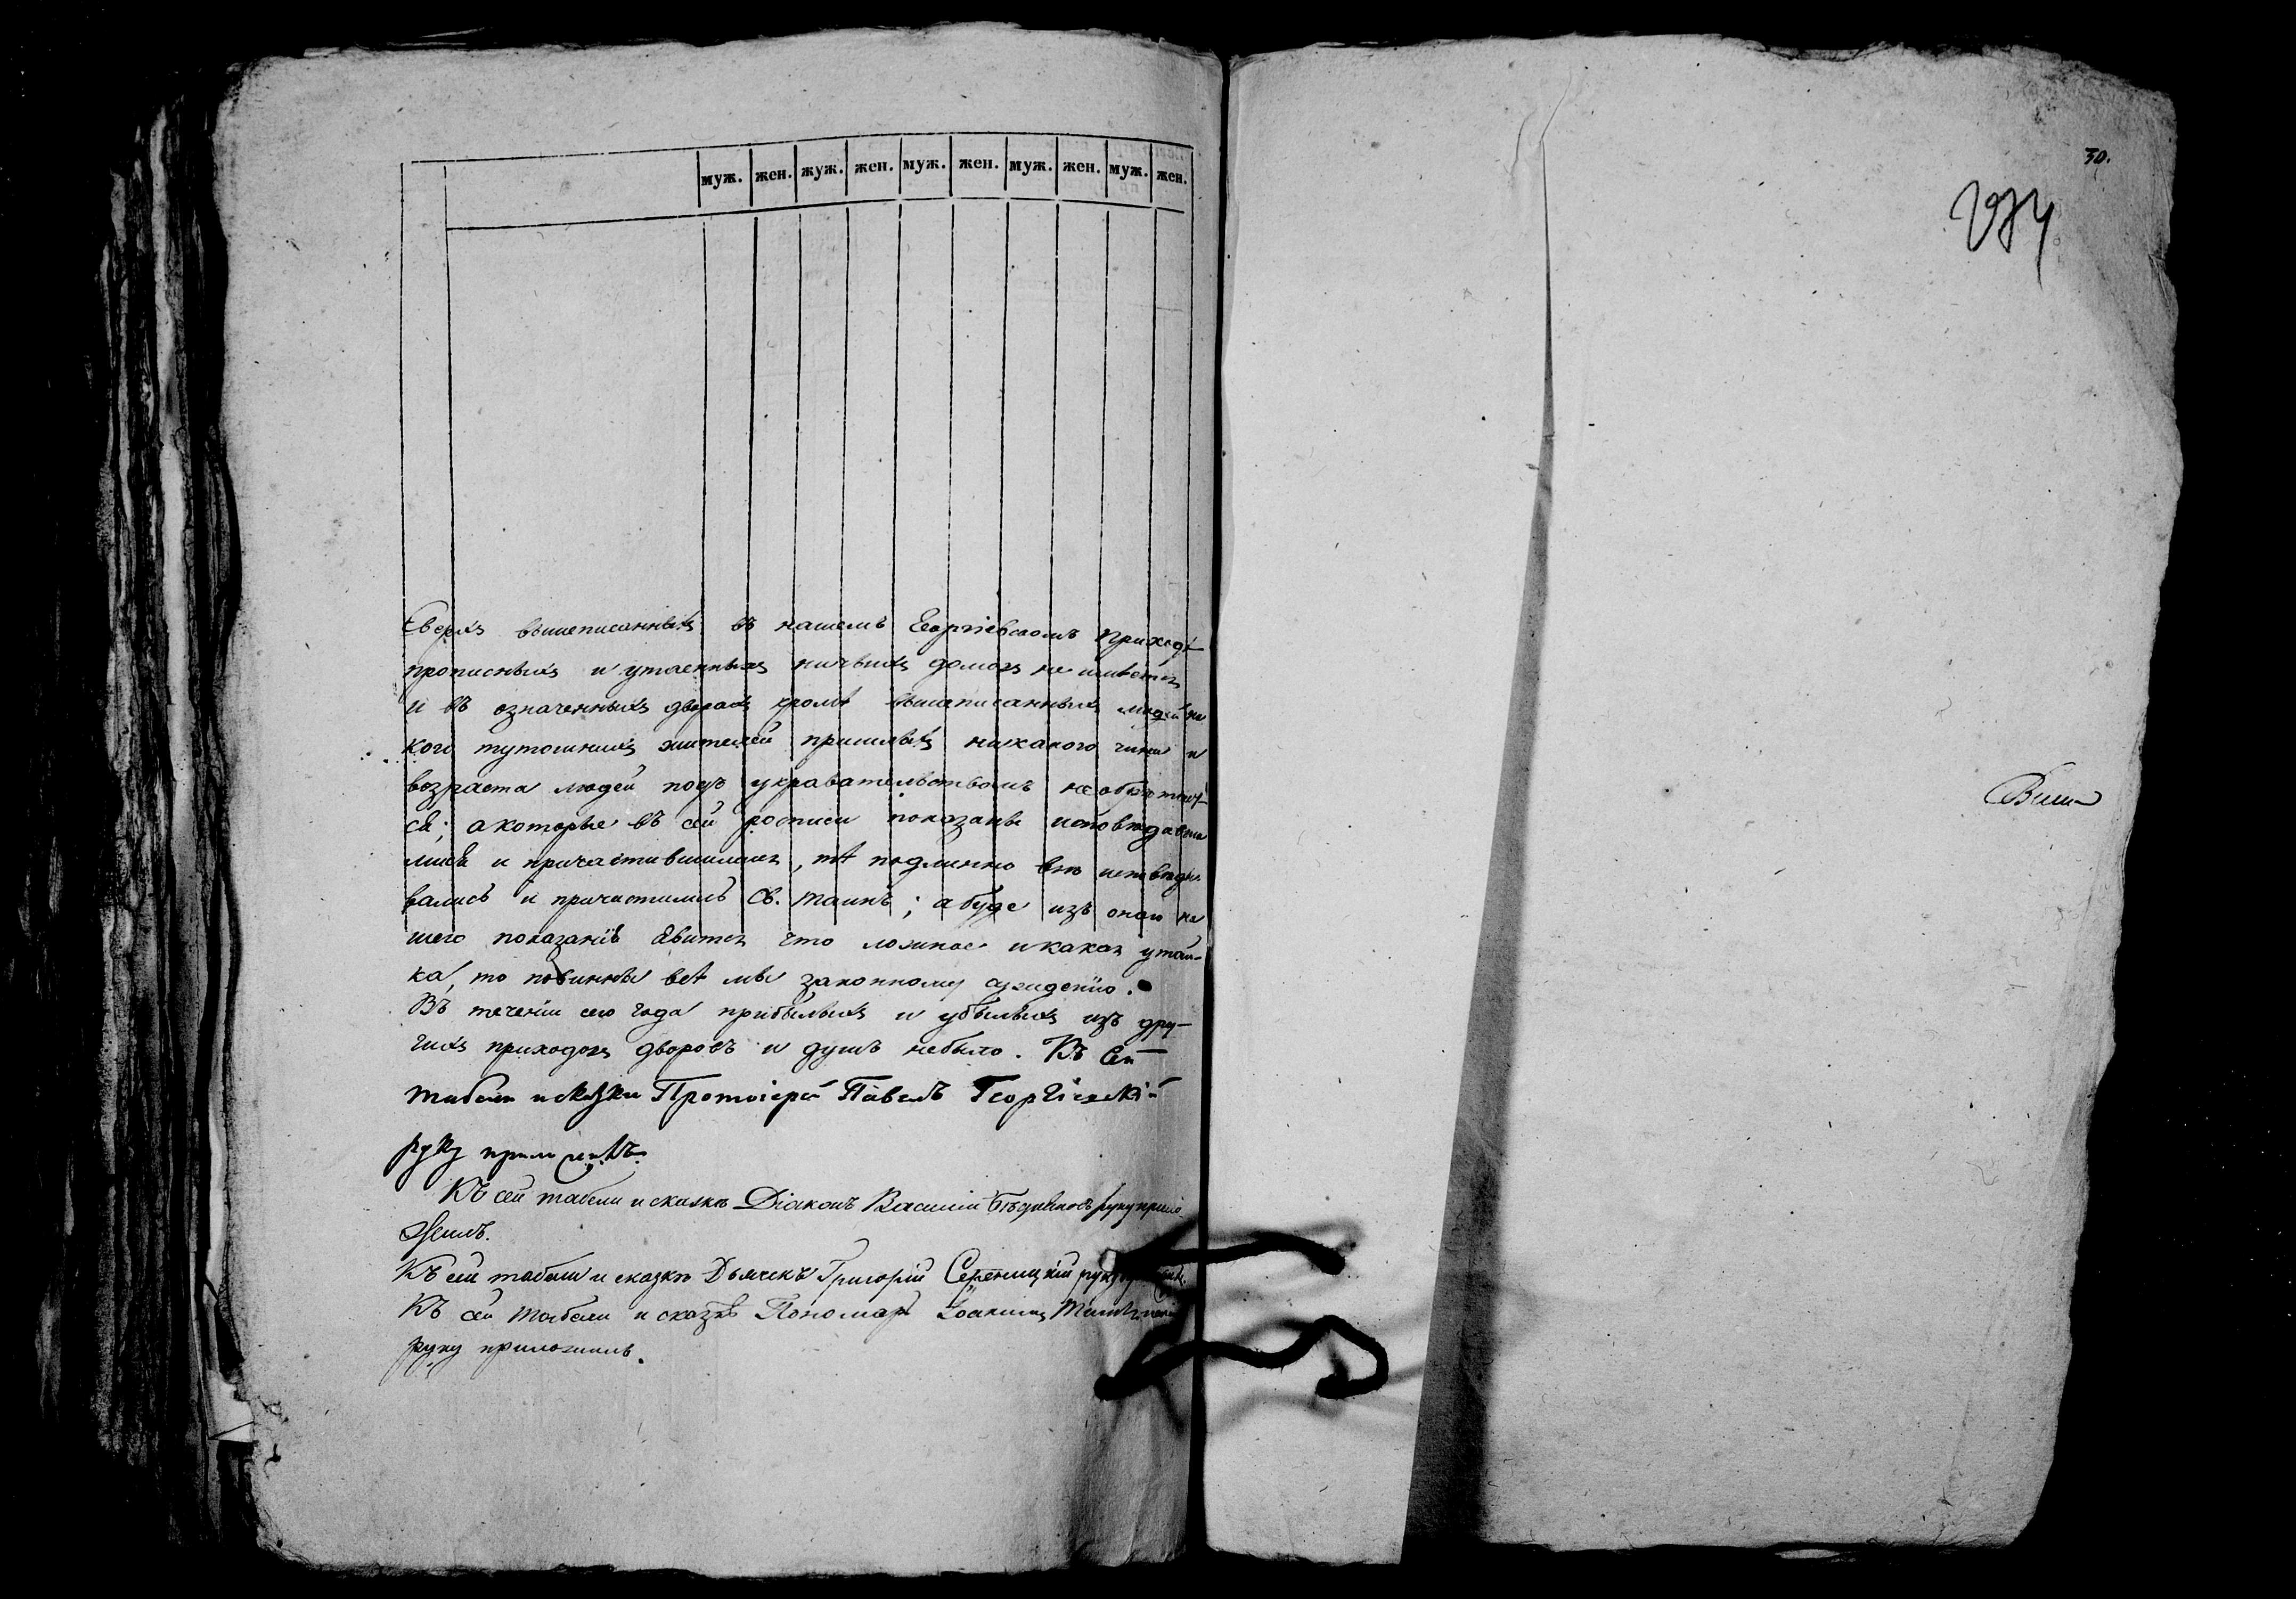 муж. жен. жуж. жен. муж. жен. муж. жен. муж. жен.
Сверхъ вышеписанныхъ въ нашемъ Георгіевскомъ приходѣ
прописныхъ и утаенныхъ ничьихъ домовъ не имѣется
и въ означенныхъ дворахъ кромѣ вышеписанныхъ людей ни
кого тутошнихъ жителей пришлыхъ никакого чина и
возраста людей подъ укравательствомъ необрѣтает
ся; а которые въ сей росписи показаны исповѣдавши
мися и причастившимися, тѣ подлинно всѣ исповѣды
вались и причастились Св. таинъ; а буде изъ онаго на
шего показанія явится что ложное и какая утай-
ка, то повинны всѣ мы законному сужденію.
Въ теченіи сего года прибылыхъ и убылыхъ изъ дру-
гихъ приходовъ дворовъ и душъ небыло. Къ сей
табели и сказки Протоіерей Павелъ Георгіевскій
руку приложилъ.
Къ сей табели и сказкѣ Діаконъ Василій руку прило
жилъ.
Къ сей табели и сказкѣ Дьячекъ Григорій руку
Къ сей табели и сказкѣ Пономарь Іоакимъ
руку приложилъ.
30.